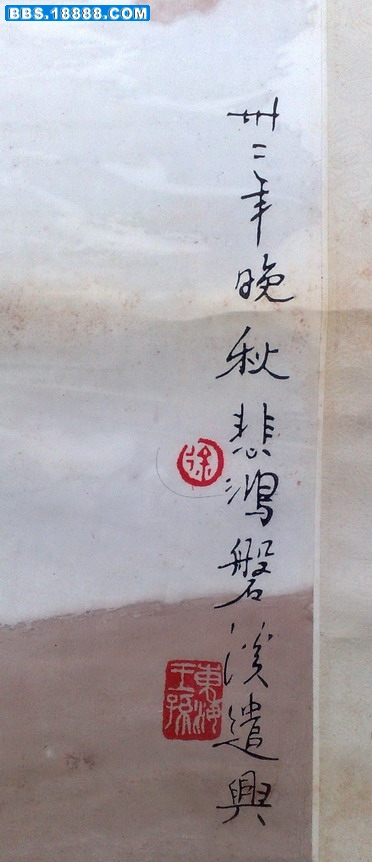 BBS.18888.COM
卅二年晚秋悲鴻磐溪遣興
徐
東海王孫